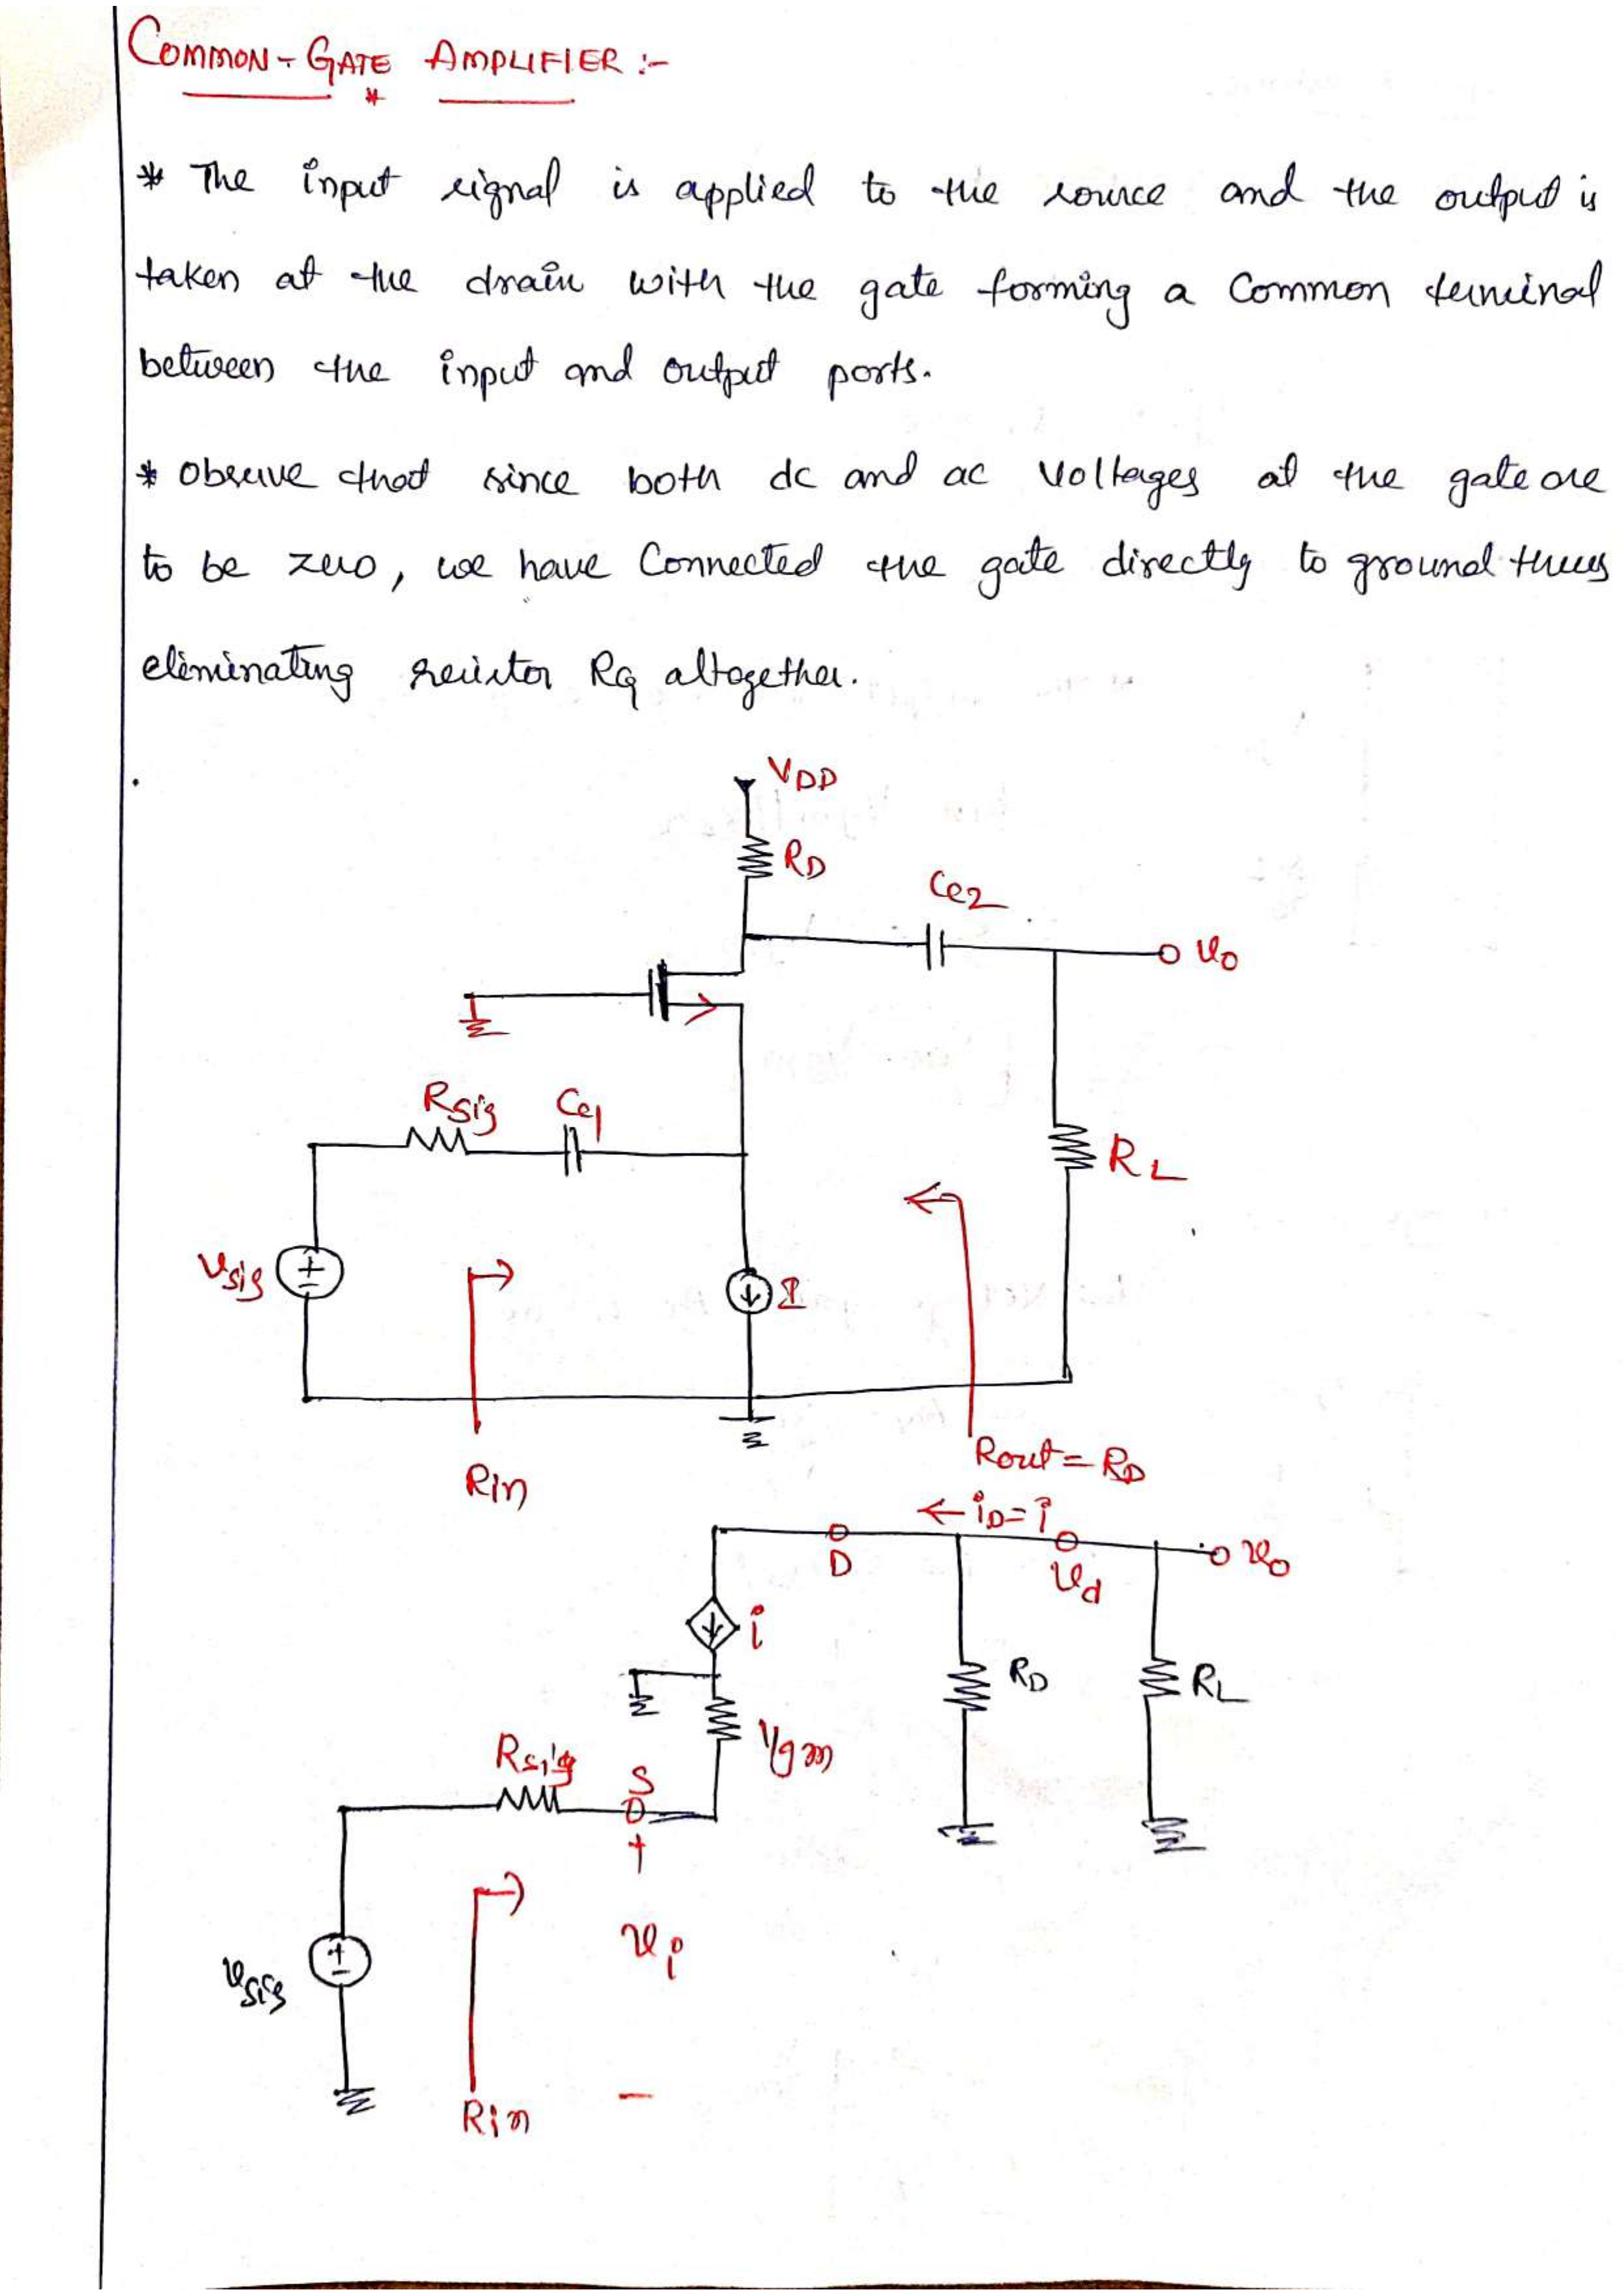 COMMON-GATE AMPLIFIER :-
* The input signal is applied to the source and the output is
taken at the drain with the gate forming a Common terminal
between the input and output ports.
* Observe that since both dc and ac Voltages at the gate are
to be zero, we have Connected the gate directly to ground thus
eliminating resistor RG altogether.
VDD
RD
Cc2
vo
Rsig Cc1
RL
vsig
I
Rin
Rout = RD
← iD = i
D
vd
vo
i
RD
RL
1/gm
Rsig
S
+
vi
vsig
Rin
-